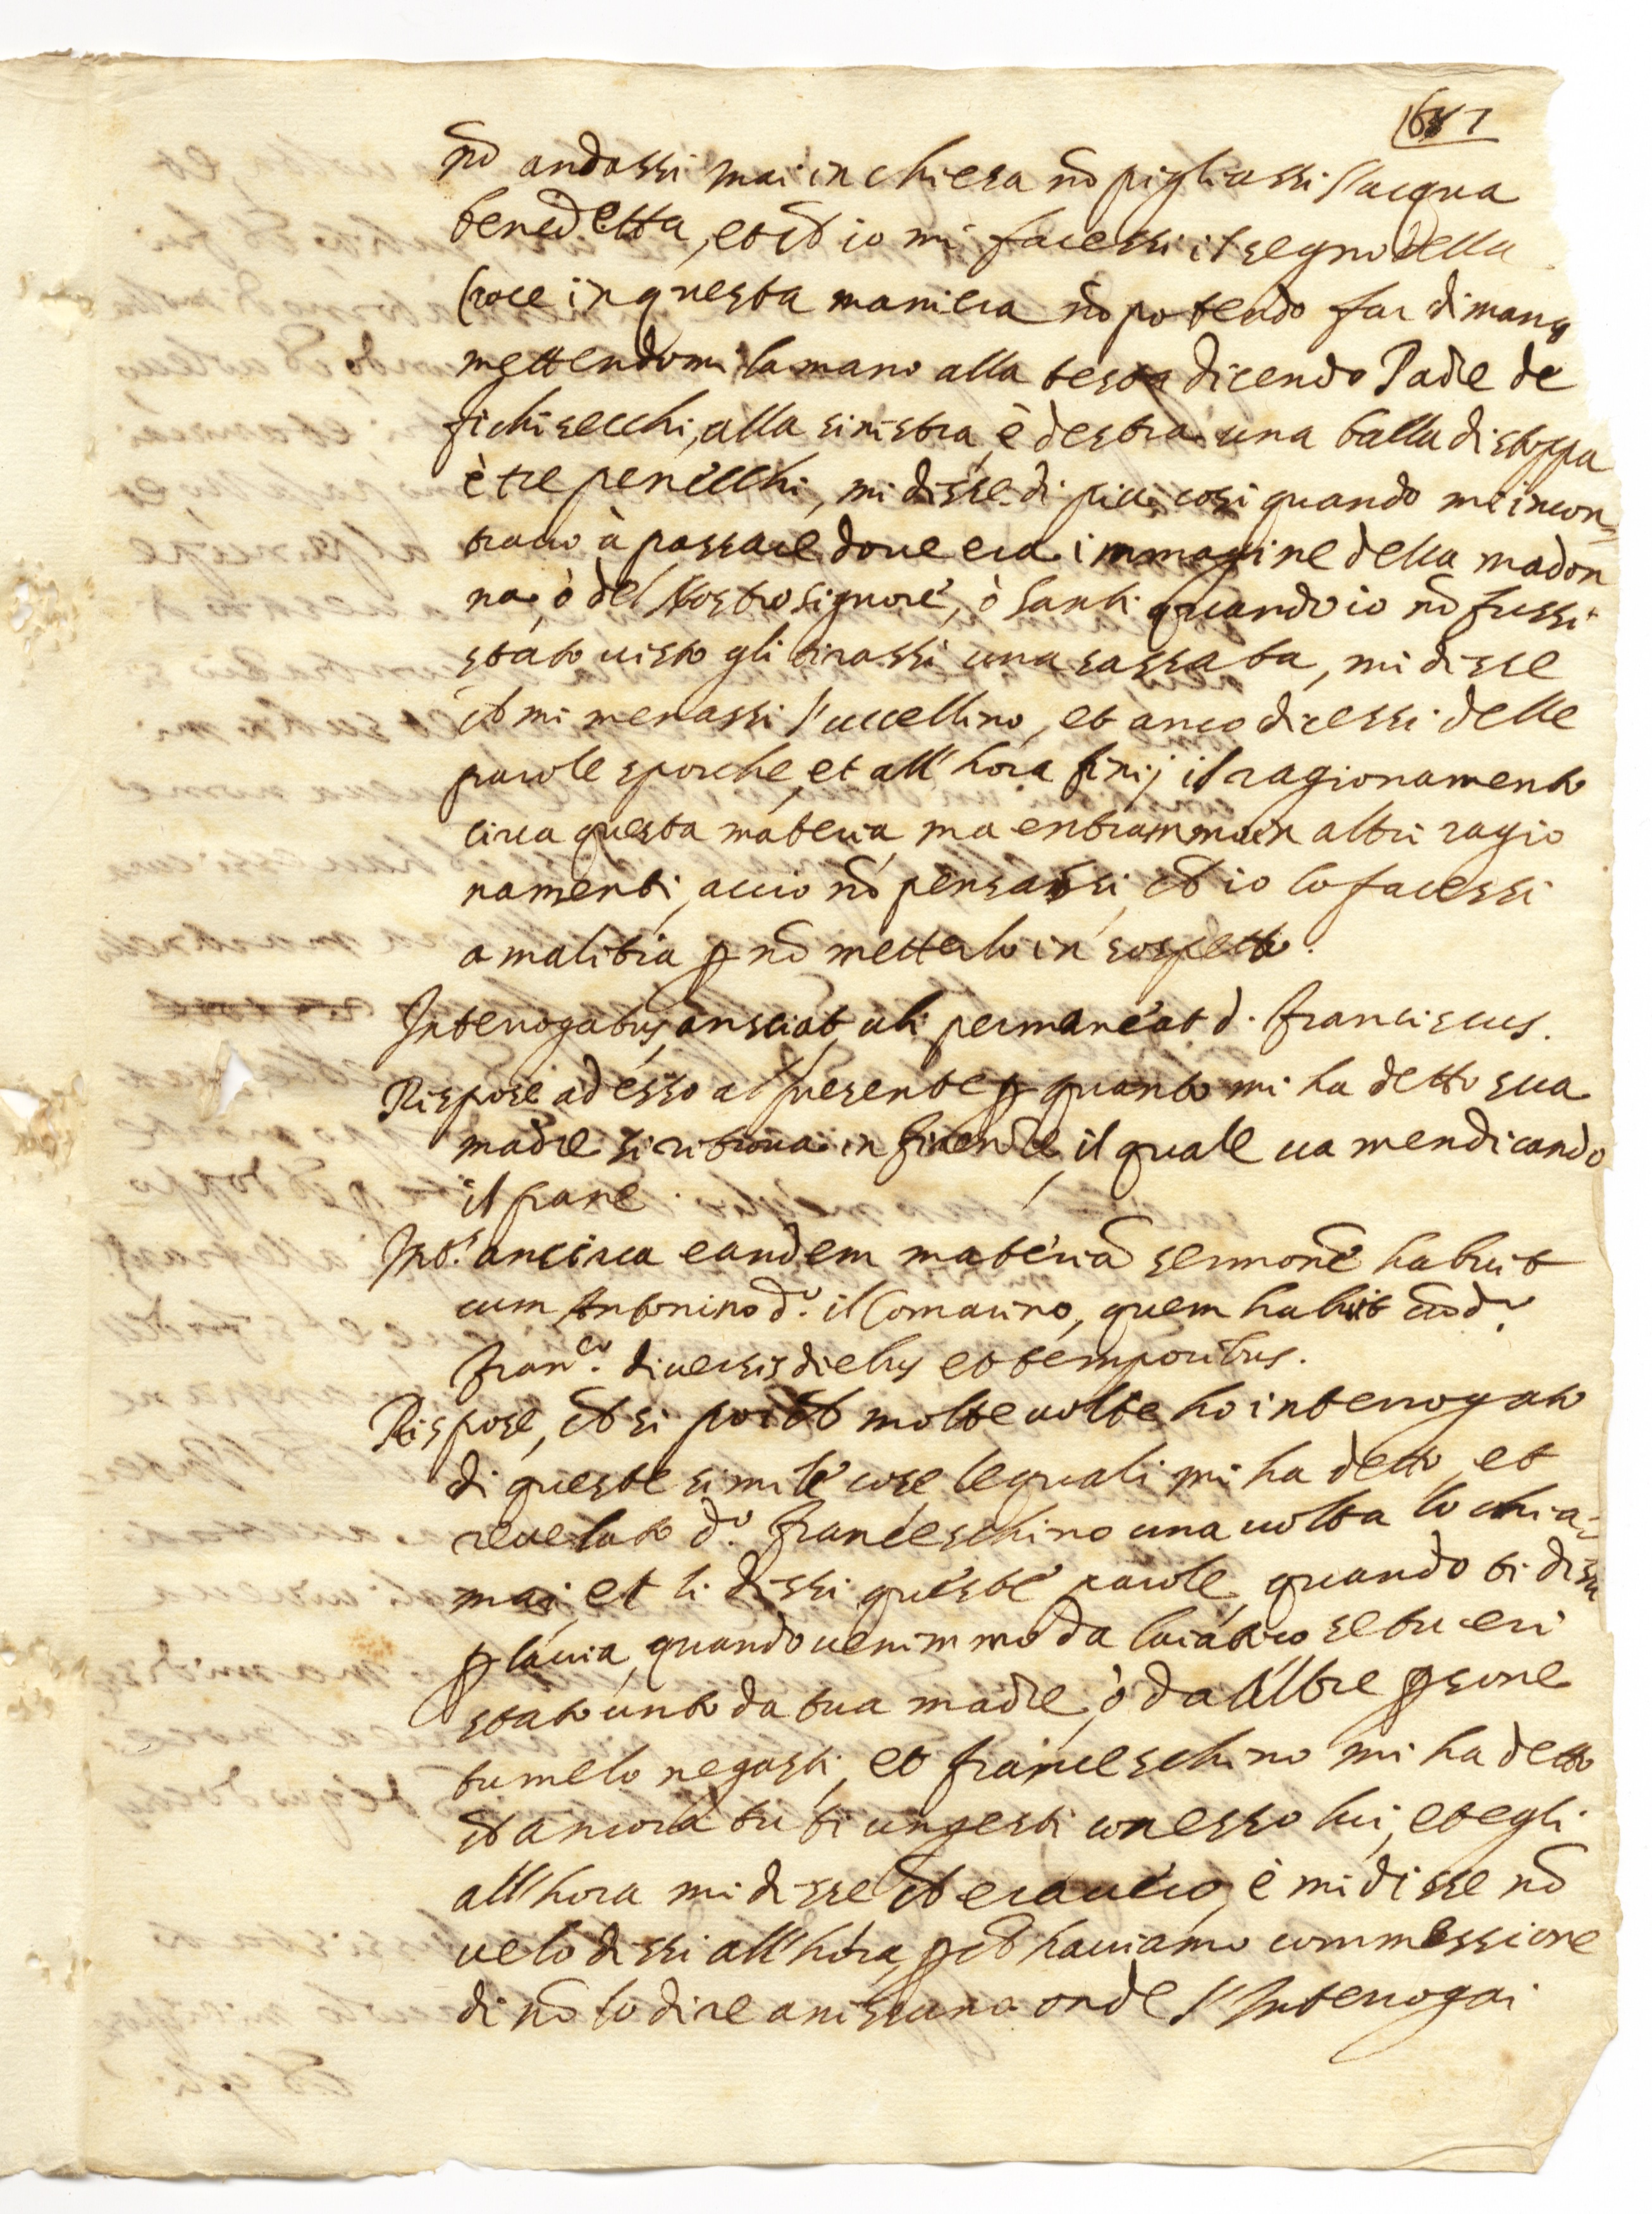 nõ andassi mai in chiesa nõ pigliassi l'acqua
benedetta, et ch io mi facessi il segno della
Croce in questa maniera nõ potendo far di mang
mettendomi la mano alla testa dicendo Padre de
fichi secchi, alla sinistra, è destra una balla di stoppa
è tre penecchi, mi disse di piu cosi quando mi incon=
travo à passare dove era immagine della madon
na, ò del Nostro Signore, ò Santi quando io nõ fussi
stato visto gli tirassi una sassata, mi disse
ch mi menassi l'uccellino, et anco dicessi delle
parole sporche, et all'hora finij il ragionamento
circa questa materia ma entrammo in altri ragio
namenti, accio nõ pensassi, ch io lo facessi
a malitia p nõ metterlo in sospetto.
Interrogatus, an sciat, ubi permaneat d. Franciscus.
Rispose adesso al presente p quanto mi ha detto sua
madre si ritrova in Firenze, il quale va mendicando
il pane.
Int.s an circa eandem materiã sermonẽ habuit
cum Antonino d.o il Comarino, quem habuit cũ d.o
Fran.co diversis diebus et temporibus.
Rispose, ch si poich molte volte ho interrogato
di queste simile cose, le quali mi ha detto, et
revelato d.o Franceschino una volta lo chia=
mai, et li dissi queste parole, quando ti dissi
p la via, quando venimmo da laiatico se tu eri
stato unto da tua madre, ò da altre psone
tu melo negasti, et franceschino mi ha detto
ch ancora tu ti ungesti con esso lui, et egli
all'hora mi disse ch era vero, è mi disse nõ
velo dissi all'hora, pch haviamo commessione
di nõ lo dire a nissuno onde l'Interrogai